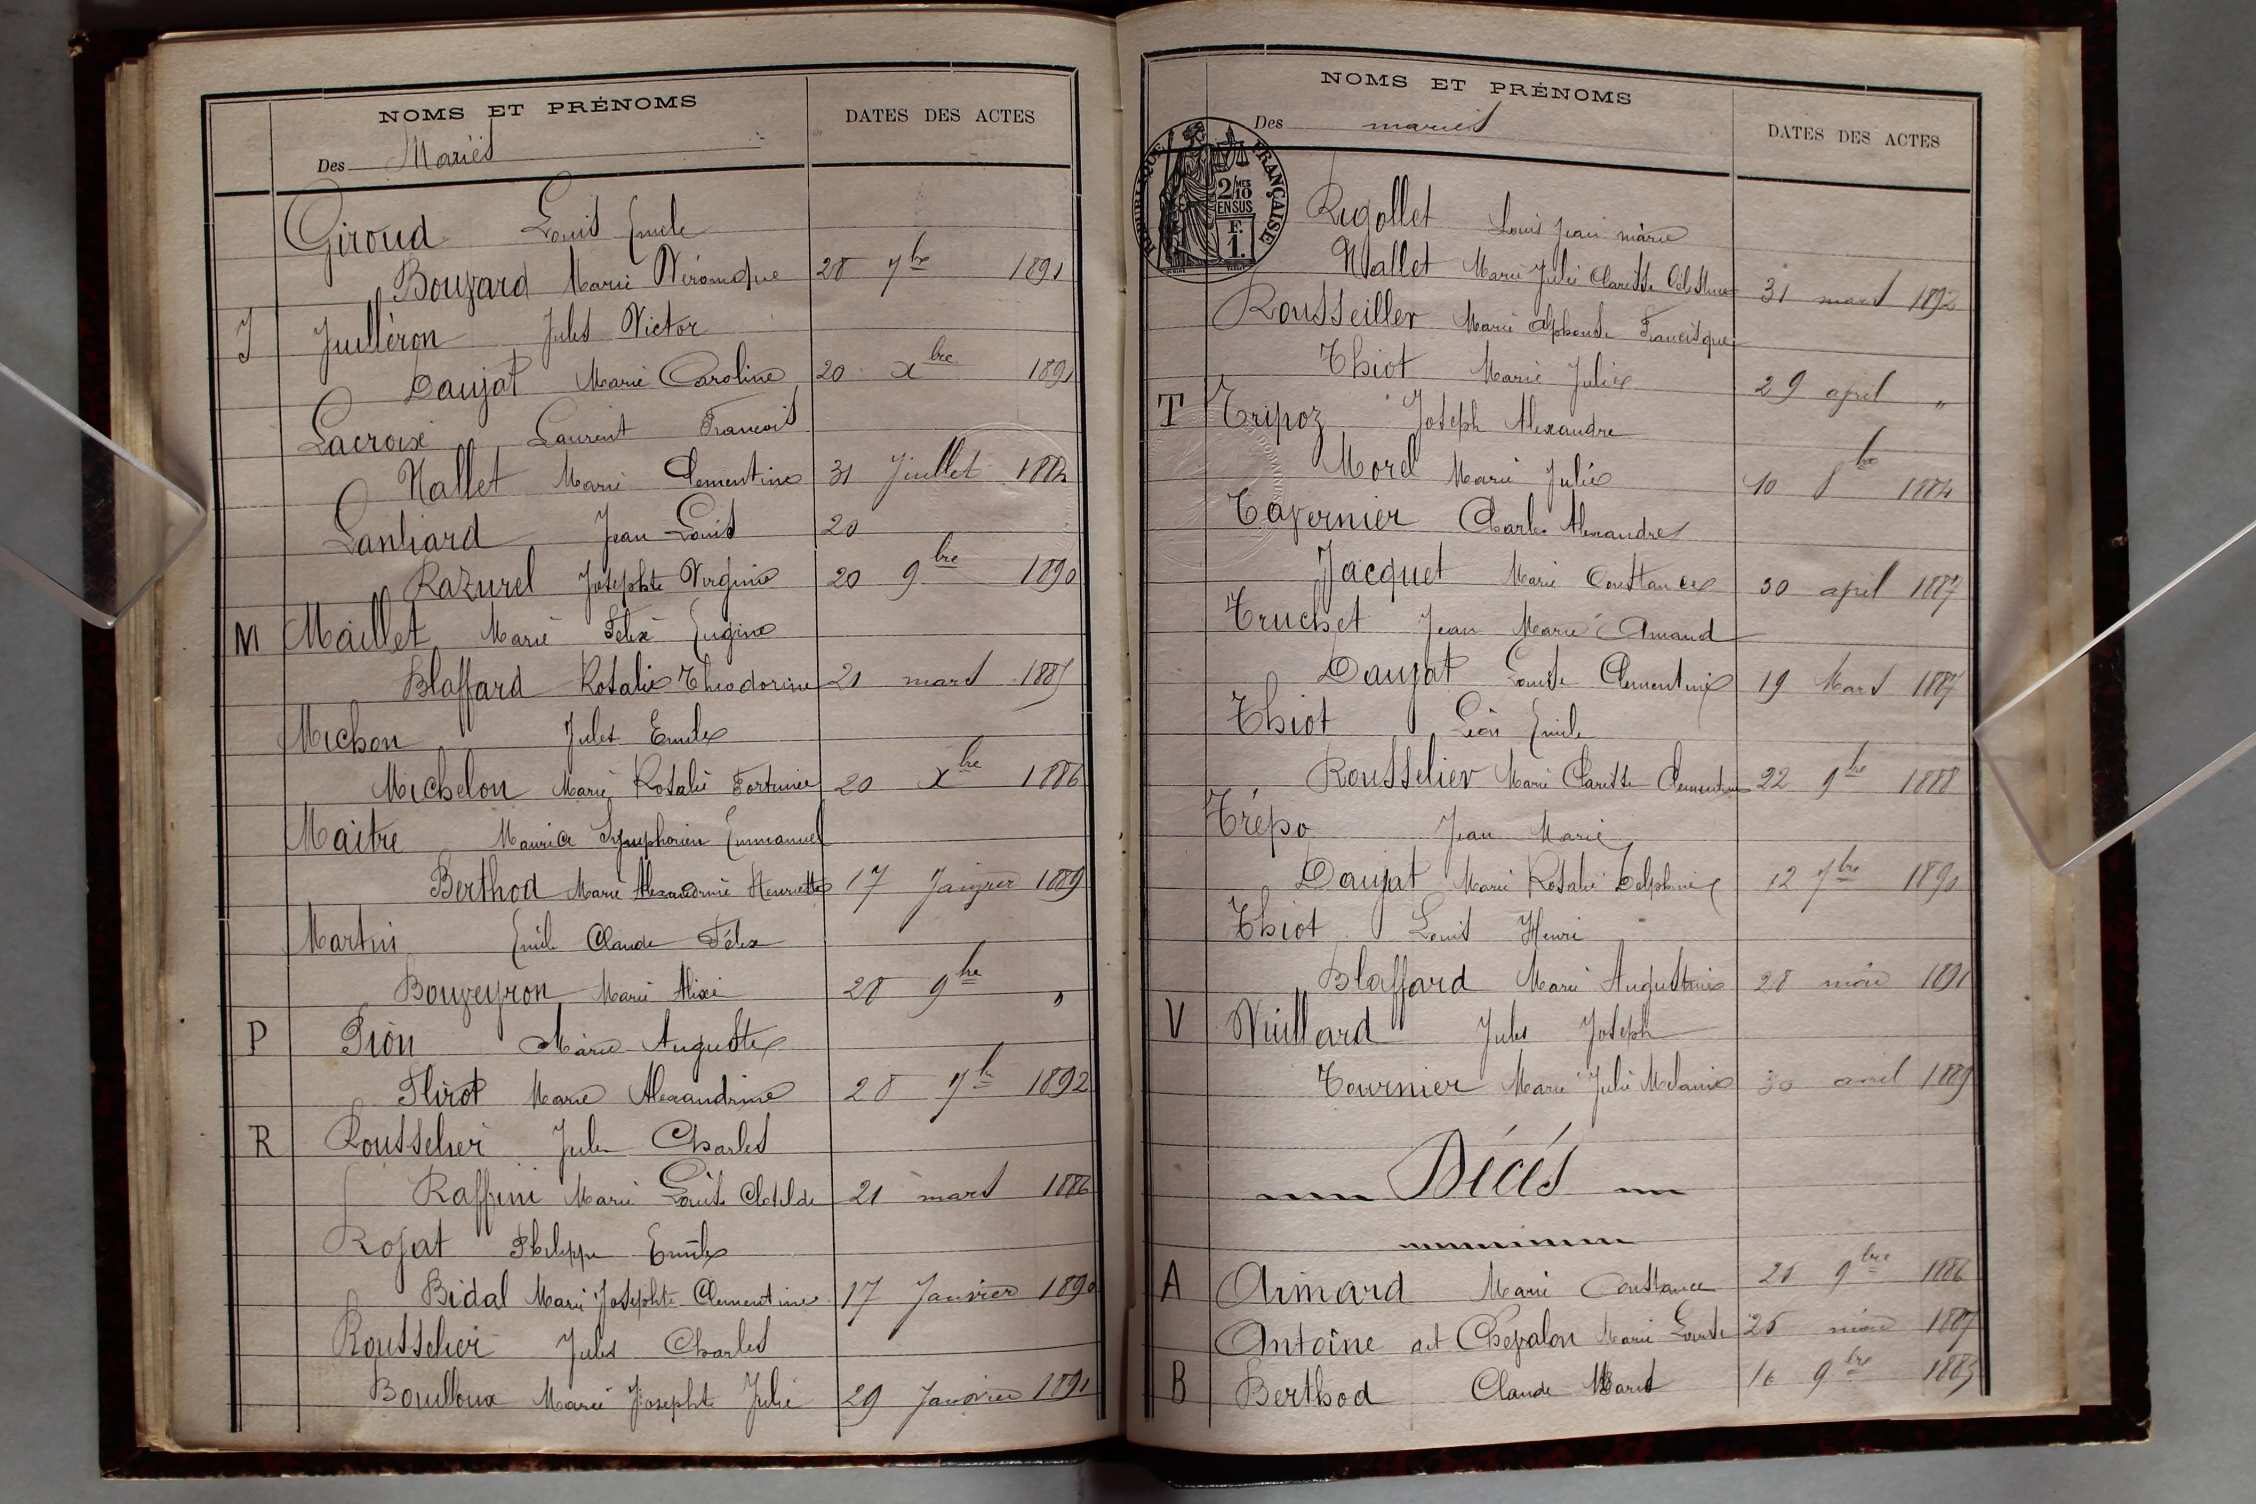 NOMS ET PRÉNOMS
DATES DES ACTES
Des Mariés
Giroud Louis Emile
Bouzard Marie Véronique 28 7bre 1891
J Juilléron Jules Victor
Daujat Marie Caroline 20 xbre 1891
Lacroix Laurent Francois
Nallet Marie Clementine 31 Juillet 1884
Lanliard Jean Louis 20
Razurel Josephte Virginie 20 9bre 1890
M Maillet Marie Félix Eugène
Blaffard Rosalie Théodorine 21 mars 1885
Michon Jules Emile
Michelon Marie Rosalie Fortunée 20 xbre 1886
Maitre Maurice Symphorien Emmanuel
Berthod Marie Alexandrine Henriette 17 Janvier 1889
Martin Emile Claude Félix
Bouveyron Marie Alixe 28 9bre "
P Pión Marie Auguste
Thirot Marie Alexandrine 28 7br 1892
R Rousselier Jules Charles
Raffini Marie Louise Clotilde 21 mars 1886
Rojat Philippe Emile
Bidal Marie Josephte Clementine 17 Janvier 1890
Rousselier Jules Charles
Bouilloux Marie Josephte Julie 29 Janvier 1891
NOMS ET PRÉNOMS
DATES DES ACTES
Des mariés
RÉPUBLIQUE FRANÇAISE
2/10 MES
EN SUS
F.
1.
Rigollet Louis Jean marie
Nallet Marie Julie Clarisse Célestine 31 mars 1892
Rousseiller Marie Alphonse Francisque
Thiot Marie Julie 29 april "
T Tripoz Joseph Alexandre
Morel Marie Julie 10 8bre 1884
Tavernier Charles Alexandre
Jacquet Marie Constance 30 april 1887
Truchet Jean Marie Amand
Daujat Louise Clementine 19 Mars 1887
Thiot Léon Emile
Rousselier Marie Clarisse Clementine 22 9bre 1888
Trépo Jean Marie
Daujat Marie Rosalie Delphine 12 7bre 1890
Thiot Louis Henri
Blaffard Marie Augustine 28 mai 1891
V Vuillard Jules Joseph
Tournier Marie Julie Melanie 30 avril 1889
Décés
A Aimard Marie Constance 28 9bre 1886
Antoine act Chevalon Marie Louise 25 mai 1887
B Berthod Claude Marie 16 9bre 1883